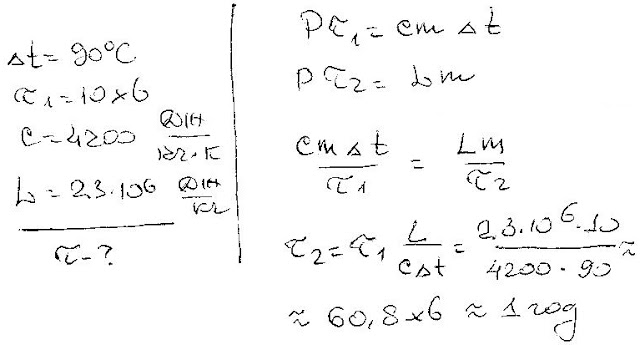 Δt = 90°C
τ₁ = 10 мин
c = 4200 Дж/кг·К
L = 2,3·10⁶ Дж/кг
τ - ?
Pτ₁ = cmΔt
Pτ₂ = Lm
cmΔt/τ₁ = Lm/τ₂
τ₂ = τ₁ L/cΔt = 2,3·10⁶·10/4200·90 ≈
≈ 60,8 мин ≈ 1 год